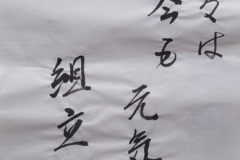 々は
今も
元気
組立